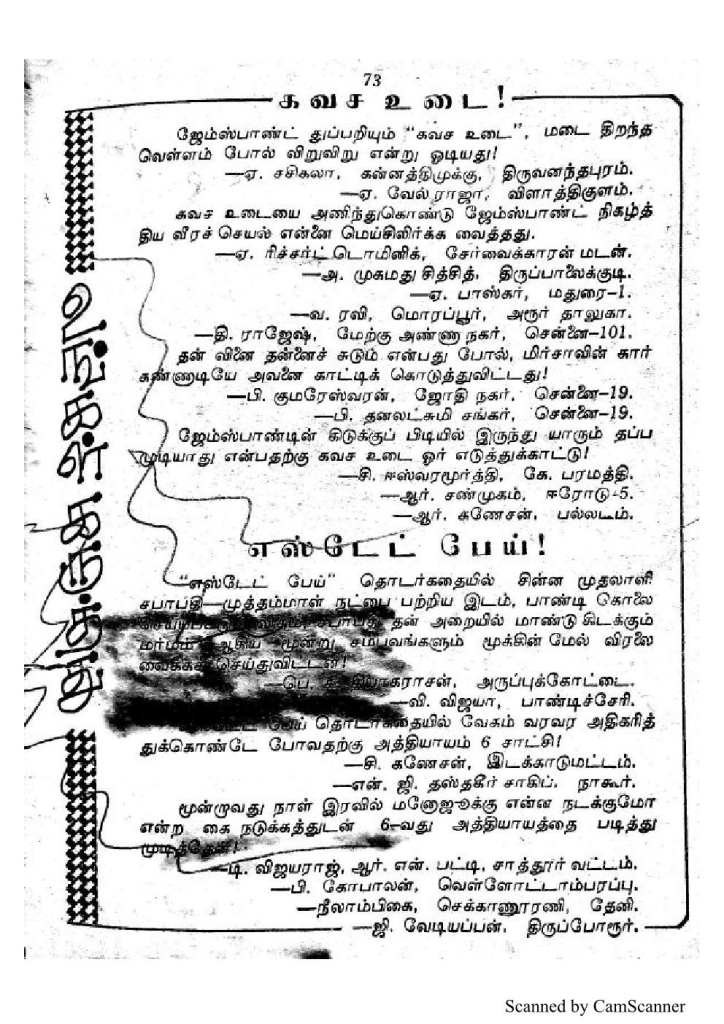 73
கவச உடை!
ஜேம்ஸ்பாண்ட் துப்பறியும் “கவச உடை”, மடை திறந்த
வெள்ளம் போல் விறுவிறு என்று ஓடியது!
—ஏ. சசிகலா, கன்னத்திமுக்கு, திருவனந்தபுரம்.
—ஏ. வேல் ராஜா, விளாத்திகுளம்.
கவச உடையை அணிந்துகொண்டு ஜேம்ஸ்பாண்ட் நிகழ்த்
திய வீரச் செயல் என்னை மெய்சிலிர்க்க வைத்தது.
—ஏ. ரிச்சர்ட் டொமினிக், சேர்வைக்காரன் மடன்.
—அ. முகமது சித்சித், திருப்பாலைக்குடி.
—ஏ. பாஸ்கர், மதுரை-1.
—வ. ரவி, மொரப்பூர், அரூர் தாலுகா.
—தி. ராஜேஷ், மேற்கு அண்ணா நகர், சென்னை—101.
தன் வினை தன்னைச் சுடும் என்பது போல், மிர்சாவின் கார்
கண்ணாடியே அவனை காட்டிக் கொடுத்துவிட்டது!
—பி. குமரேஸ்வரன், ஜோதி நகர், சென்னை—19.
—பி. தனலட்சுமி சங்கர், சென்னை—19.
ஜேம்ஸ்பாண்டின் கிடுக்குப் பிடியில் இருந்து யாரும் தப்ப
முடியாது என்பதற்கு கவச உடை ஓர் எடுத்துக்காட்டு!
—சி. ஈஸ்வரமூர்த்தி, கே. பரமத்தி.
—ஆர். சண்முகம், ஈரோடு-5.
—ஆர். கணேசன், பல்லடம்.
எஸ்டேட் பேய்!
“எஸ்டேட் பேய்” தொடர்கதையில் சின்ன முதலாளி
சபாபதி—முத்தம்மாள் நட்பை பற்றிய இடம், பாண்டி கொலை
சபாபதி தன் அறையில் மாண்டு கிடக்கும்
மர்மம் ஆகிய மூன்று சம்பவங்களும் மூக்கின் மேல் விரலை
வைக்கச் செய்துவிட்டன!
—பெ. தியாகராசன், அருப்புக்கோட்டை.
—வி. விஜயா, பாண்டிச்சேரி.
பேய் தொடர்கதையில் வேகம் வரவர அதிகரித்
துக்கொண்டே போவதற்கு அத்தியாயம் 6 சாட்சி!
—சி. கணேசன், இடக்காடுமட்டம்.
—என். ஜி. தஸ்தகீர் சாகிப். நாகூர்.
மூன்றாவது நாள் இரவில் மனோஜுக்கு என்ன நடக்குமோ
என்ற கை நடுக்கத்துடன் 6—வது அத்தியாயத்தை படித்து
முடித்தேன்!
—டி. விஜயராஜ், ஆர். என். பட்டி, சாத்தூர் வட்டம்.
—பி. கோபாலன், வெள்ளோட்டாம்பரப்பு.
—நீலாம்பிகை, செக்காணூரணி, தேனி.
—ஜி. வேடியப்பன், திருப்போரூர்.
உங்கள் கருத்து
Scanned by CamScanner